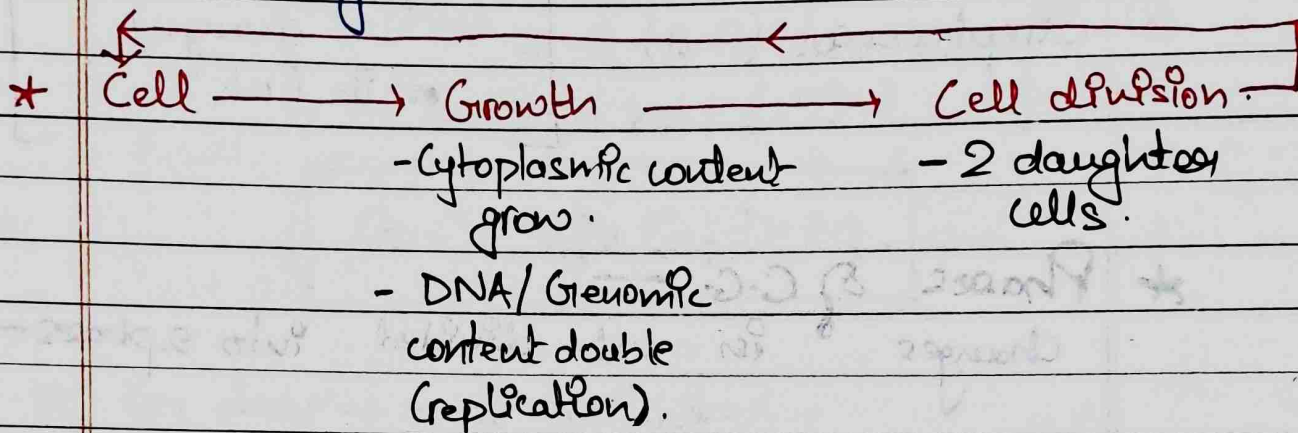 * Cell → Growth → Cell division.
-Cytoplasmic content
grow.
- DNA/Genomic
content double
(replication).
- 2 daughter
cells.
* Phases of C.C
changes in into